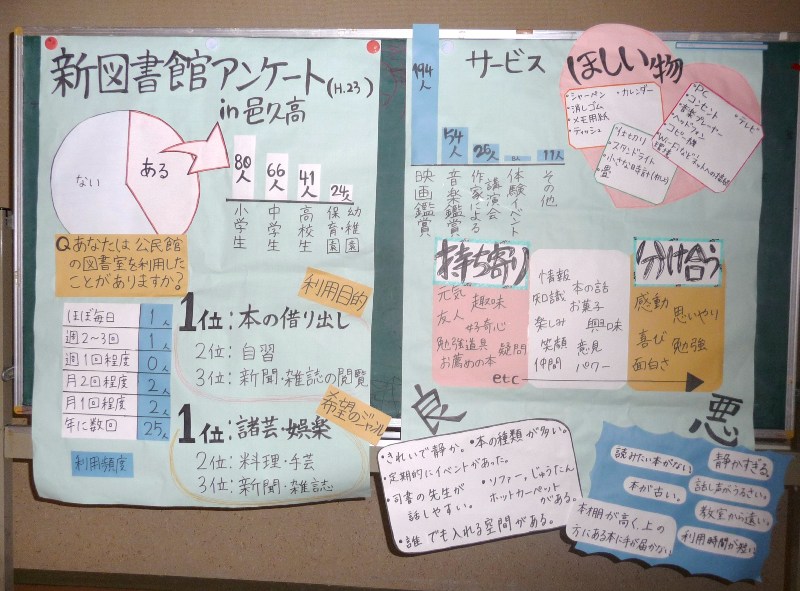 新図書館アンケート(H.23)
in邑久高
ない
ある
80人
66人
41人
24人
小学生
中学生
高校生
保育・幼稚園
園
Qあなたは公民館
の図書室を利用した
ことがありますか?
ほぼ毎日 1人
週2~3回 1人
週1回程度 0人
月2回程度 2人
月1回程度 2人
年に数回 25人
利用頻度
利用目的
1位:本の借り出し
2位:自習
3位:新聞・雑誌の閲覧
希望のジャンル
1位:諸芸・娯楽
2位:料理・手芸
3位:新聞・雑誌
サービス
194人
54人
25人
11人
映画鑑賞
音楽鑑賞
作家による
講演会
体験イベント
その他
ほしい物
・シャーペン
・カレンダー
・消しゴム
・メモ用紙
・ティッシュ
・PC
・コンセント
・テレビ
・音楽プレーヤー
・ヘッドフォン
・コピー機
・Wi-Fiなどネットへの接続
環境
・仕切り
・スタンドライト
・小さな時計(机上)
・畳
持ち寄り
元気
趣味
友人
好奇心
勉強道具
疑問
お薦めの本
情報
本の話
知識
お菓子
楽しみ
興味
笑顔
意見
仲間
パワー
分け合う
感動
思いやり
喜び
勉強
面白さ
etc
良
・きれいで静か。
・本の種類が多い。
・定期的にイベントがあった。
・司書の先生が
話しやすい。
・ソファー、じゅうたん
ホットカーペット
がある。
・誰でも入れる空間がある。
悪
読みたい本がない
静かすぎる。
本が古い。
話し声がうるさい。
本棚が高く、上の
方にある本に手が届かない
教室から遠い。
利用時間が短い